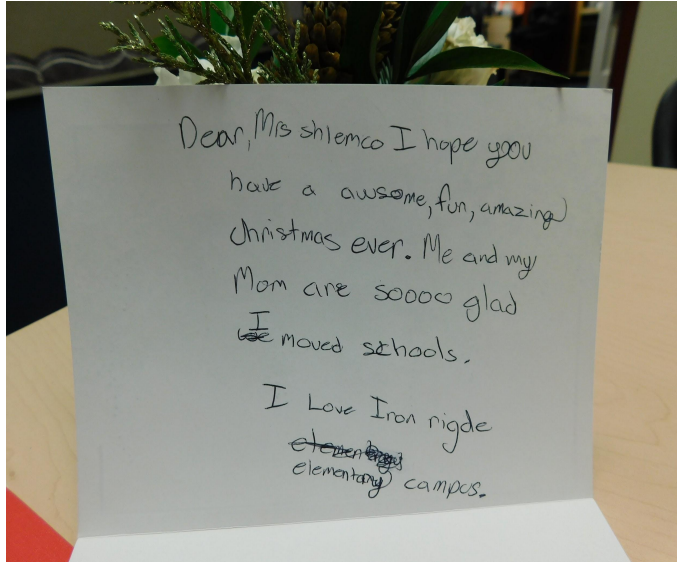 Dear, Mrs shlemco I hope yoou
have a awsome, fun, amazing
christmas ever. Me and my
Mom are soooo glad
I moved schools.
I Love Iron rigde
elementary campus.